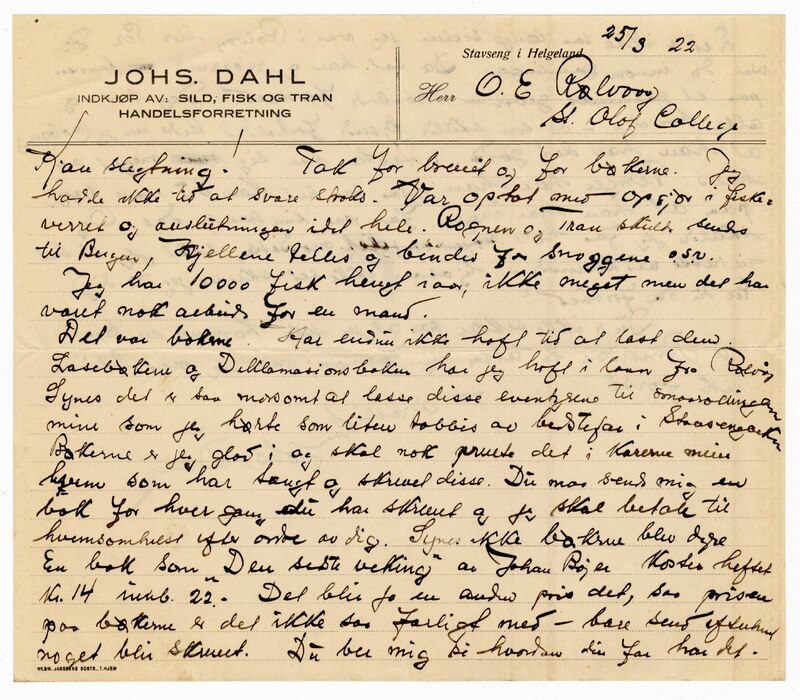 JOHS. DAHL
INDKJØP AV: SILD, FISK OG TRAN
HANDELSFORRETNING
Stavseng i Helgeland 25/3 22
Herr O. E Rølvaag
St. Olof College
Kjære slegtning! Tak for brevet og for bøkerne. Jeg
hadde ikke tid at svare straks. Var optat med opgjør i fiske=
verret og avslutningen i det hele. Rognen og Tran skulde sendes
til Bergen, Hjellene telles og bindes for snoggene osv.
Jeg har 10000 fisk hengt iaar, ikke meget men det har
været nok arbeide for en mand.
Det var bøkerne. Har endnu ikke haft tid at læst dem.
Læsebøkene og Deklamasionsboken har jeg haft i laan fra Rølvåg
Synes det er saa morsomt at læsse disse eventyrene til smaarollingan
mine som jeg hørte som liten tobbis av bedstefar i
Bøkerne er jeg glad i og skal nok prente det i Karene mine
hvem som har samlet og skrevet disse. Du maa sende mig en
bok for hver gang du har skrevet og jeg skal betale til
hvemsomhelst efter ordre av dig. Synes ikke bøkerne blev dyre
En bok som "Den sidste veking" av Johan Bojer koster heftet
Kr. 14 innb. 22.- Det blir jo en anden pris det, saa prisen
paa bøkerne er det ikke saa farligt med – bare send efterhvert
noget blir skrevet. Du ber mig si hvordan din far har det.